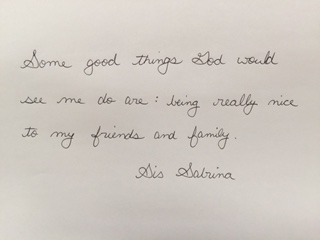 Some good things God would
see me do are : being really nice
to my friends and family.
Sis Sabrina